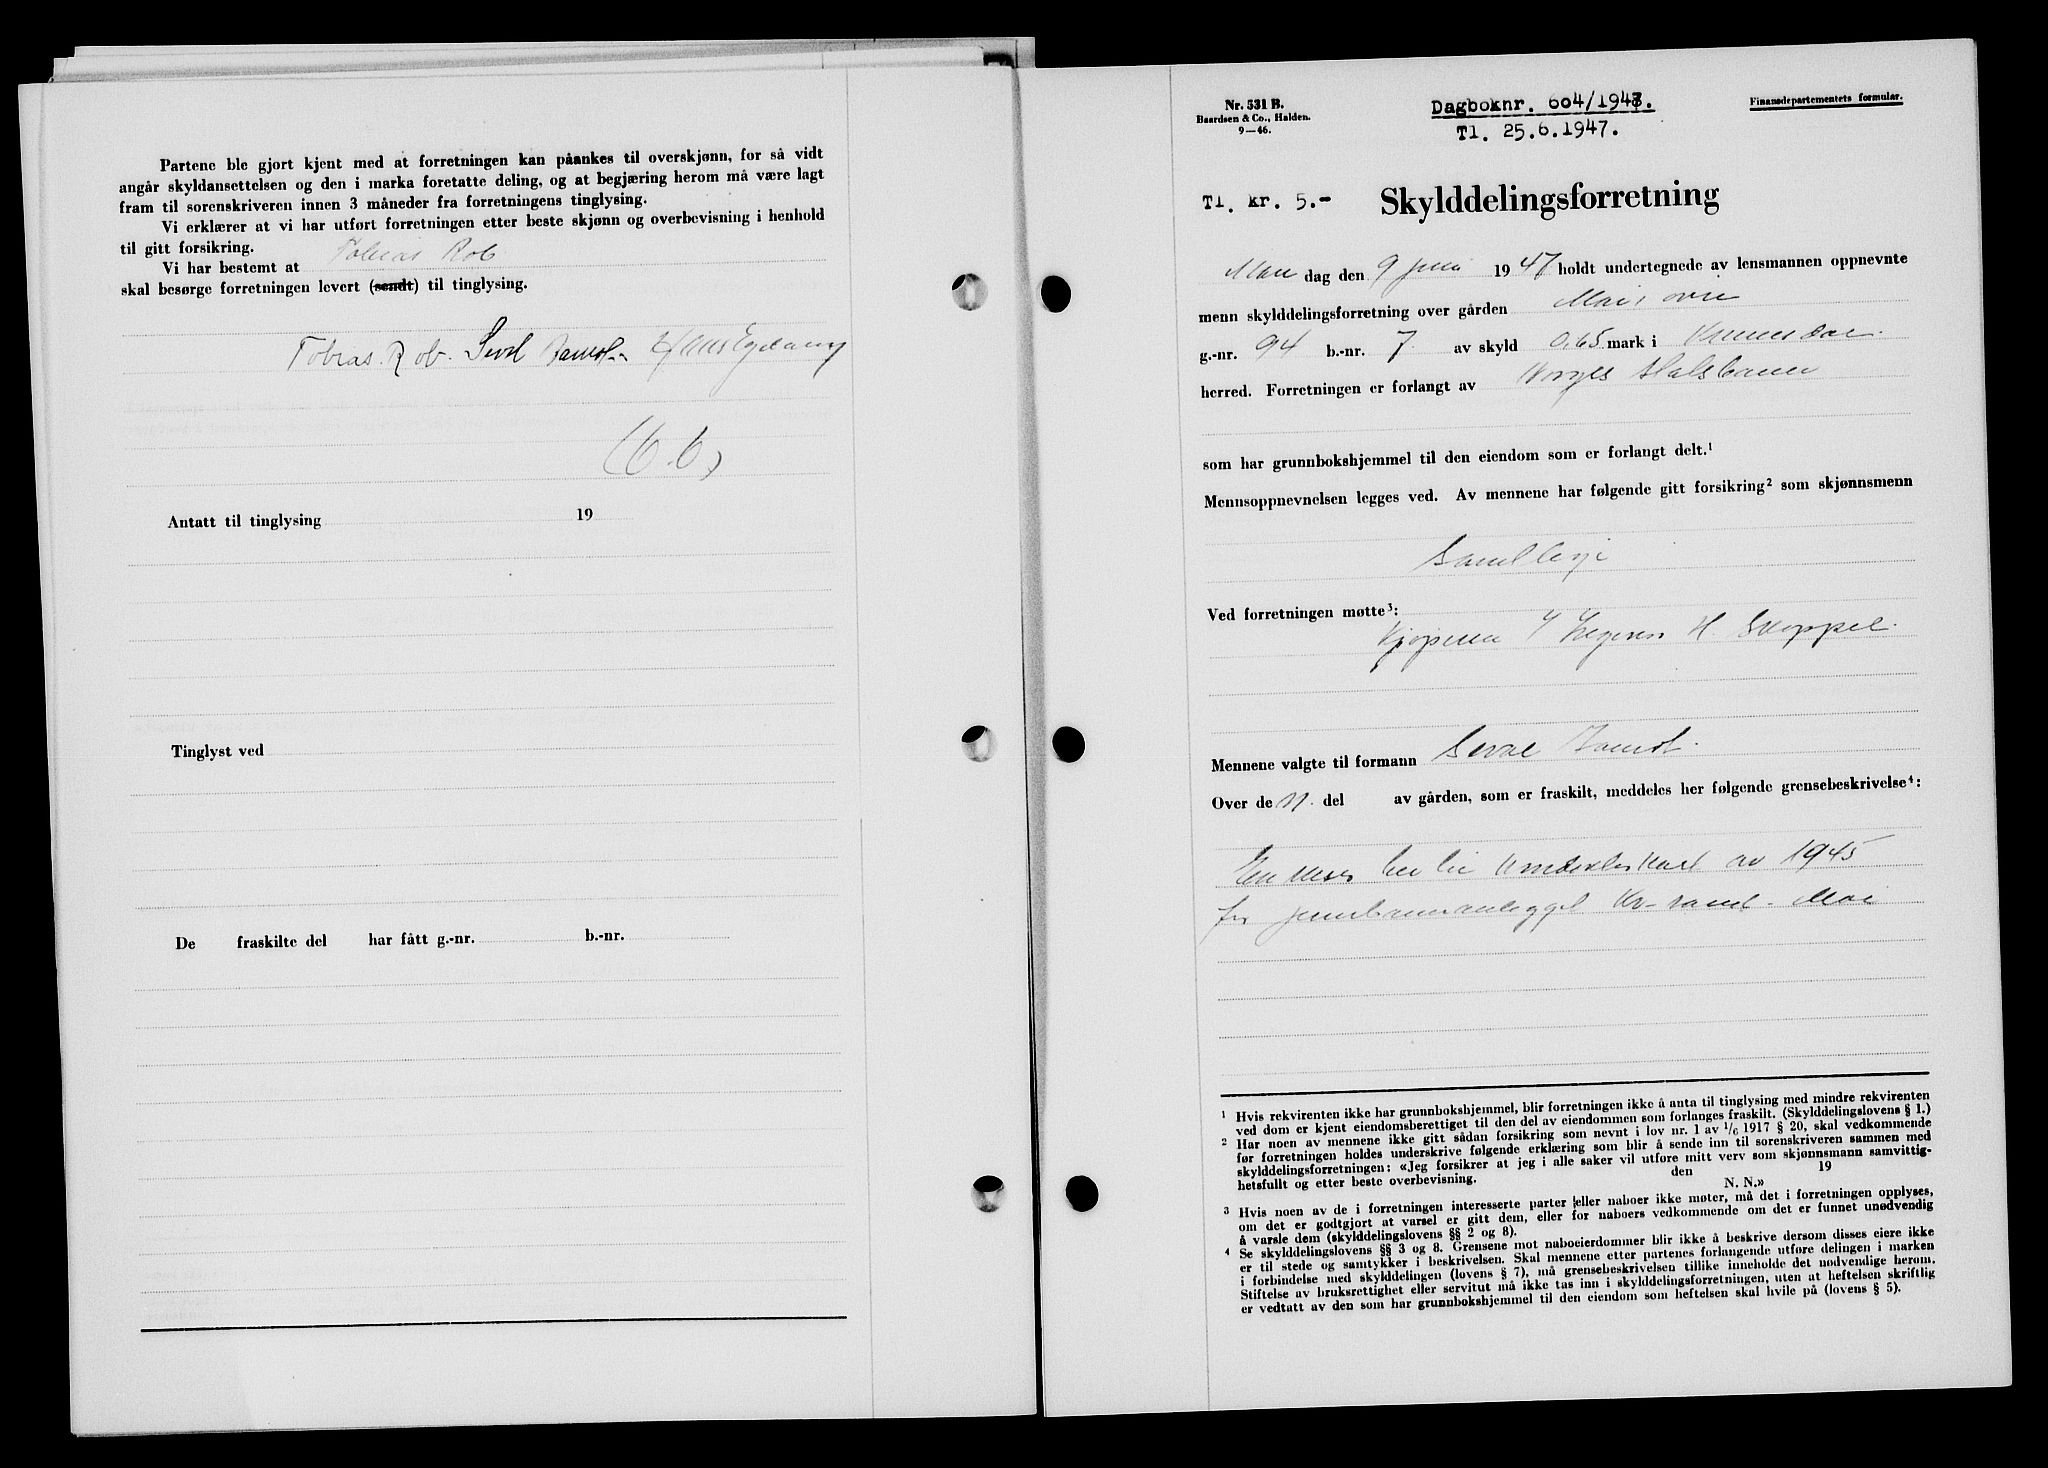 Partene ble gjort kjent med at forretningen kan påankes til overskjønn, for så vidt
angår skyldansettelsen og den i marka foretatte deling, og at begjæring herom må være lagt
fram til sorenskriveren innen 3 måneder fra forretningens tinglysing.
Vi erklærer at vi har utført forretningen etter beste skjønn og overbevisning i henhold
til gitt forsikring.
Vi har bestemt at Tobias Rob
skal besørge forretningen levert (sendt) til tinglysing.
Tobias Rob.
(6.6)
Antatt til tinglysing 19
Tinglyst ved
De fraskilte del har fått g.-nr. b.-nr.
Nr. 531 B.
Baardsen & Co., Halden.
9—46.
Dagboknr. 604/1947.
Tl. 25.6.1947.
Finansdepartementets formular.
Tl. kr. 5.-
Skylddelingsforretning
Man dag den 9 juni 1947 holdt undertegnede av lensmannen oppnevnte
menn skylddelingsforretning over gården Moi øvre
g.-nr. 94 b.-nr. 7 av skyld 0,65 mark i
herred. Forretningen er forlangt av Norges Statsbaner
som har grunnbokshjemmel til den eiendom som er forlangt delt.¹
Mennsoppnevnelsen legges ved. Av mennene har følgende gitt forsikring² som skjønnsmenn
Samtlige
Ved forretningen møtte³:
Kjøperen H. Skoppel.
Mennene valgte til formann
Over de n. del av gården, som er fraskilt, meddeles her følgende grensebeskrivelse⁴:
av 1945
for jernbaneanlegget Kr-sand - Moi
¹ Hvis rekvirenten ikke har grunnbokshjemmel, blir forretningen ikke å anta til tinglysing med mindre rekvirenten
ved dom er kjent eiendomsberettiget til den del av eiendommen som forlanges fraskilt. (Skylddelingslovens § 1.)
² Har noen av mennene ikke gitt sådan forsikring som nevnt i lov nr. 1 av 1/6 1917 § 20, skal vedkommende
før forretningen holdes underskrive følgende erklæring som blir å sende inn til sorenskriveren sammen med
skylddelingsforretningen: «Jeg forsikrer at jeg i alle saker vil utføre mitt verv som skjønnsmann samvittig-
hetsfullt og etter beste overbevisning. den 19
N. N.»
³ Hvis noen av de i forretningen interesserte parter eller naboer ikke møter, må det i forretningen opplyses,
om det er godtgjort at varsel er gitt dem, eller for naboers vedkommende om det er funnet unødvendig
å varsle dem (skylddelingslovens §§ 2 og 8).
⁴ Se skylddelingslovens §§ 3 og 8. Grensene mot naboeierdommer blir ikke å beskrive dersom disses eiere ikke
er til stede og samtykker i beskrivelsen. Skal mennene etter partenes forlangende utføre delingen i marken
i forbindelse med skylddelingen (lovens § 7), må grensebeskrivelsen tillike inneholde det nødvendige herom.
Stiftelse av bruksrettighet eller servitut må ikke tas inn i skylddelingsforretningen, uten at heftelsen skriftlig
er vedtatt av den som har grunnbokshjemmel til den eiendom som heftelsen skal hvile på (lovens § 5).